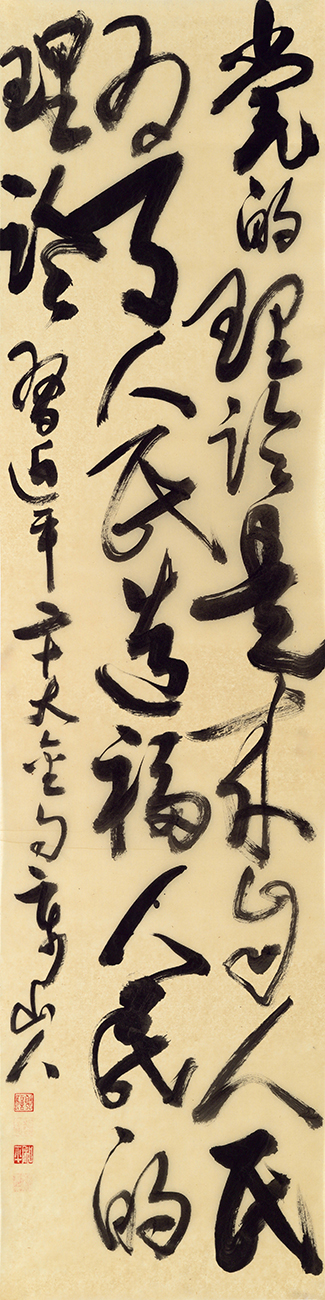 党的理论是来自人民
为了人民造福人民的
理论 習近平二十大金句 山人